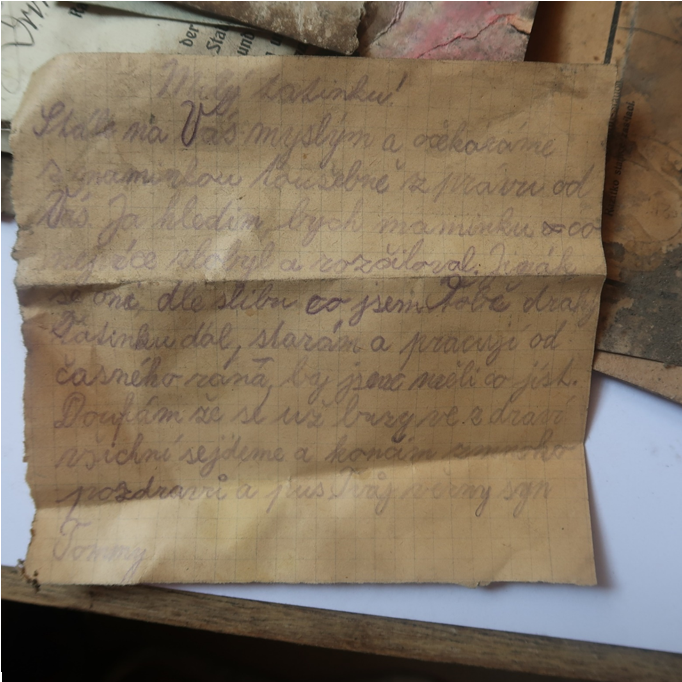 Milý tatínku!
Stále na Vás myslým a očekáváme
z maminkou toužebně zprávu od
Vás. Ja hledím, bych maminku co
nej více zlobyl a rozčiloval. Jinák
se one, dle slibu co jsem Tobě drahý
Tatínku dal, starám a pracuji od
časného ráná, by jsme měli co jíst.
Doufám že se už brzy ve zdraví
všichní sejdeme a konám mnoho
pozdravů a pus Tvůj věrny syn
Tommy
der
Sta
und